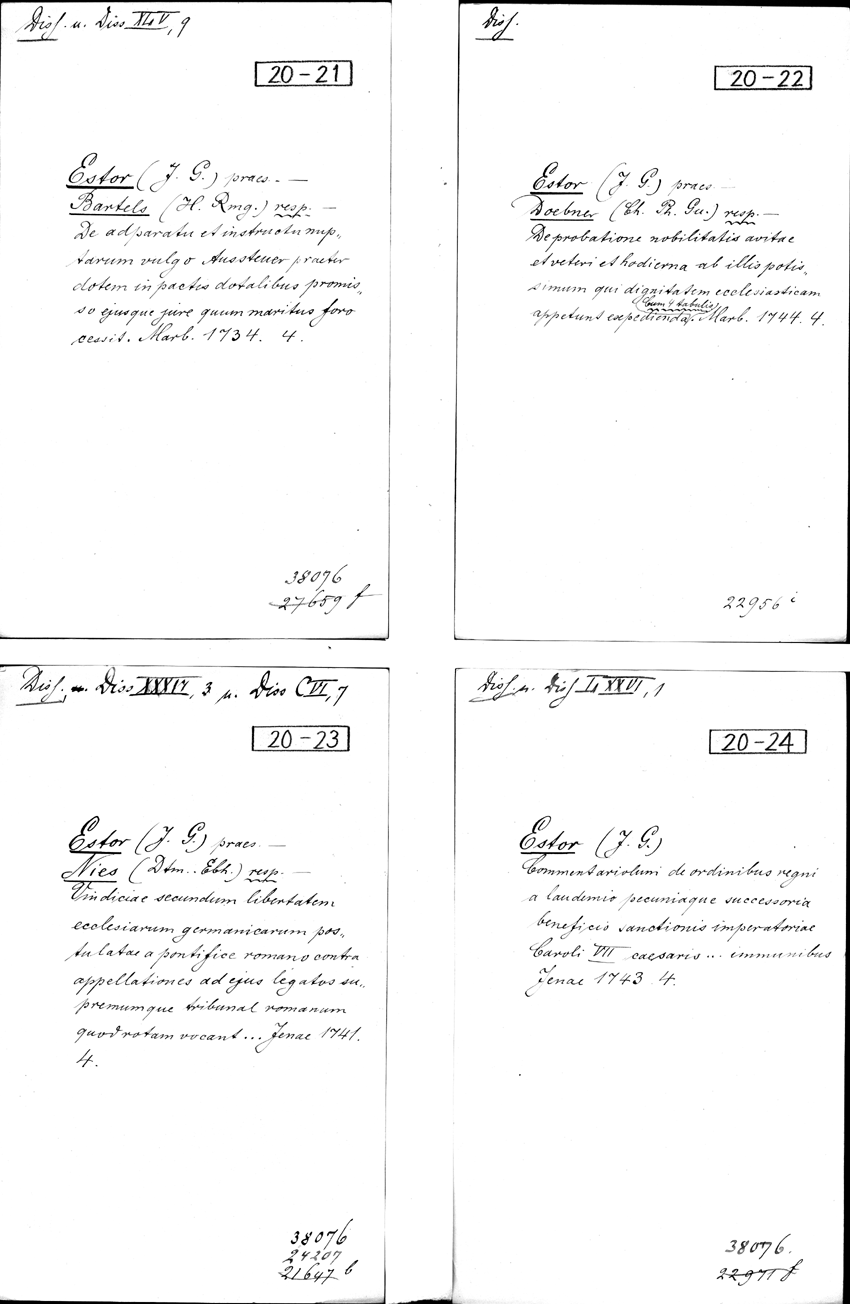 Diss. u. Diss XLV, 9
20-21
Estor (J. G.) praes. —
Bartels (H. Rmg.) resp. —
De adparatu et instructu nup„
tarum vulgo Aussteuer praeter
dotem in pactis dotalibus promis„
so ejusque jure quum maritus foro
cessit. Marb. 1734. 4.
38076
27659 f
Diss.
20-22
Estor (J. G.) praes —
Doebner (Ch. Ph. Gu.) resp. —
De probatione nobilitatis avitae
et veteri et hodierna ab illis potis„
simum qui dignitatem ecclesiasticam
(Cum 4 tabulis)
appetunt expedienda. Marb. 1744. 4.
22956 i
Diss. u. Diss XXXIV, 3 u. Diss CVI, 7
20-23
Estor (J. G.) praes —
Nies (Dtm. Ebh.) resp. —
Vindiciae secundum libertatem
ecclesiarum germanicarum pos„
tulatae a pontifice romano contra
appellationes ad ejus legatos su„
premumque tribunal romanum
quod rotam vocant... Jenae 1741.
4.
38076
24207
21647 b
Diss. u. Diss LXXVI, 1
20-24
Estor (J. G.)
Commentariolum de ordinibus regni
a laudemio pecuniaque successoria
beneficio sanctionis imperatoriae
Caroli VII caesaris... immunibus
Jenae 1743. 4.
38076.
22971 f